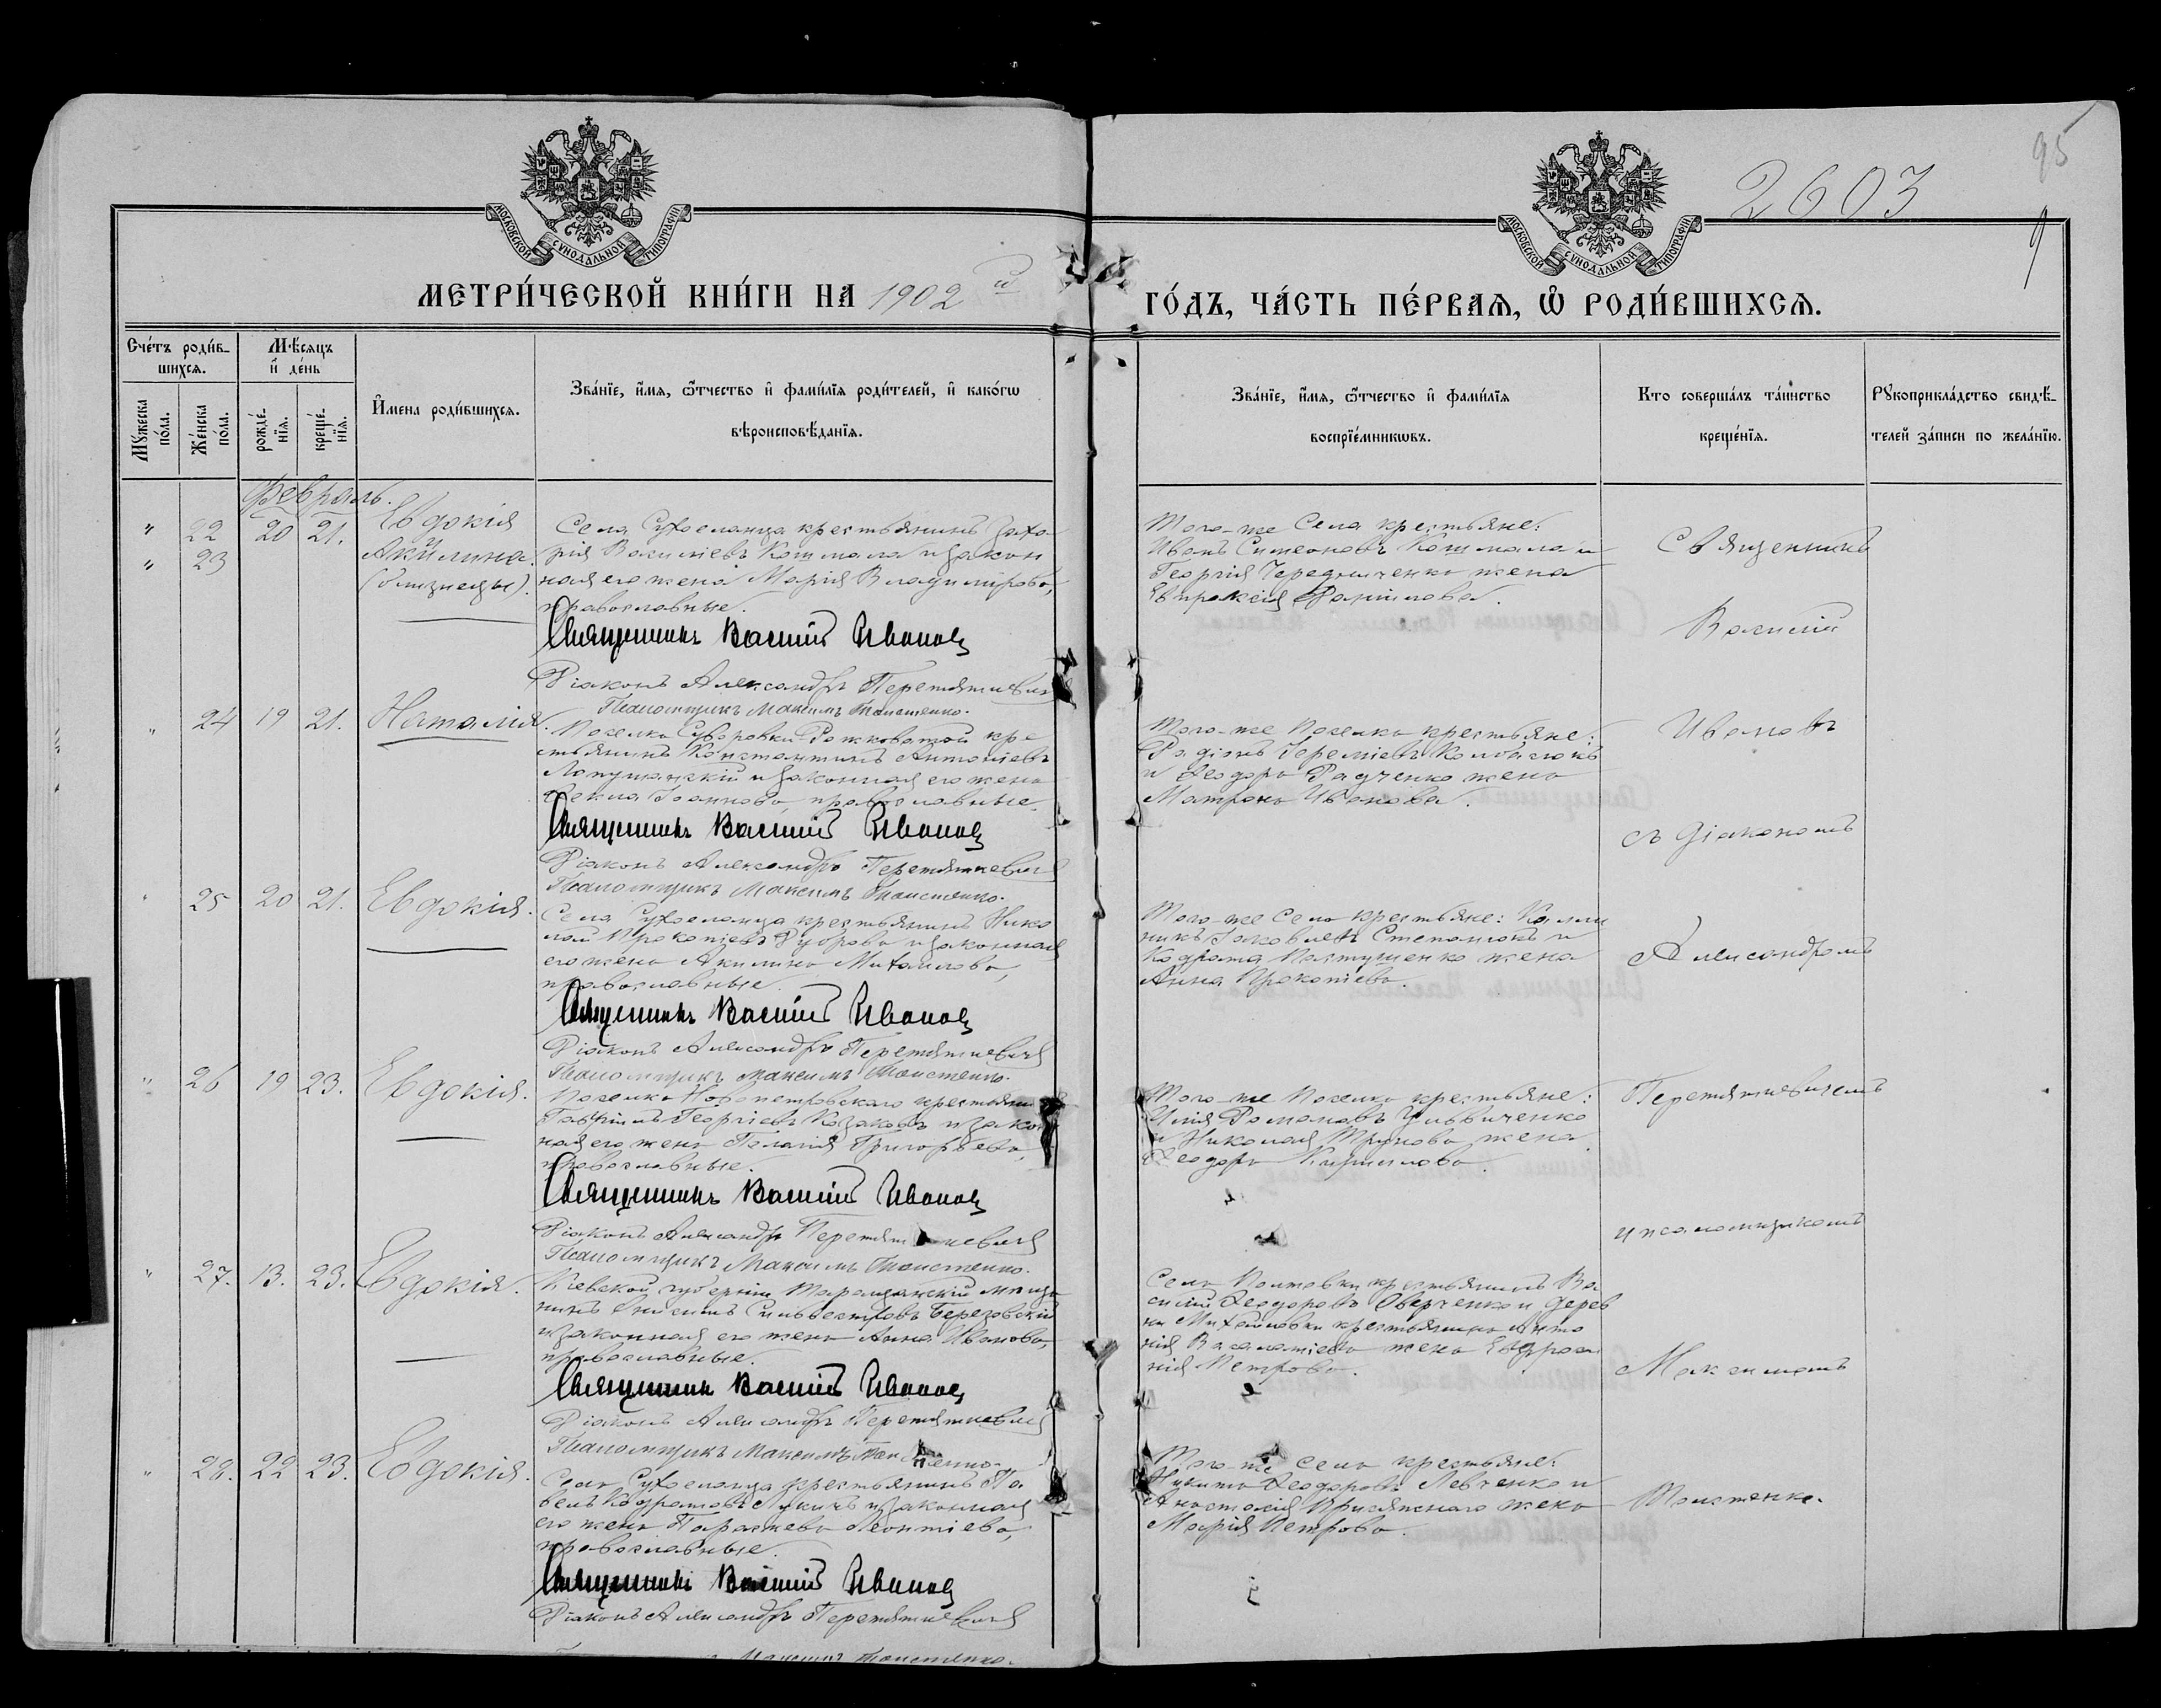 95
2603
9
МОСКОВСКОЙ СѴНОДАЛЬНОЙ ТИПОГРАФІИ
МОСКОВСКОЙ СѴНОДАЛЬНОЙ ТИПОГРАФІИ
МЕТРИ́ЧЕСКОЙ КНИ́ГИ НА 1902 й
ГО́ДЪ, ЧА́СТЬ ПЕ́РВАѦ, Ѡ҆ РОДИ́ВШИХСѦ.
Счє́тъ роди́в-
шихсѧ.
Мѣ́сѧцъ
и҆ дє́нь
Мꙋ́жеска по́ла.
Жє́нска по́ла.
рождє́-нїѧ.
крещє́-нїѧ.
И҆мена роди́вшихсѧ.
Зва́нїе, и҆́мѧ, ѻ҆́тчество и҆ фами́лїѧ роди́телей, и҆ како́гѡ
вѣроисповѣ́данїѧ.
Зва́нїе, и҆́мѧ, ѻ҆́тчество и҆ фами́лїѧ
воспрїе́мникѡвъ.
Кто соверша́лъ та́инство
креще́нїѧ.
Рꙋкоприкла́дство свидѣ́-
телей за́писи по жела́нїю.
Февраль.
" 22 20 21. Евдокія
" 23 Акилина.
(близнецы).
Села Сухоеланца крестьянинъ Заха-
рія Василіевъ Кошмала и закон
ная его жена Марія Владимірова,
православные.
Священникъ Василій Ивановъ
Діаконъ Александръ Перетяткевичъ
Псаломщикъ Максимъ Толстенко.
Того-же Села крестьяне:
Иванъ Симеоновъ Кошмала и
Георгія Чередниченко жена
Евпраксія Даніилова.
Священникъ
Василій
" 24 19 21. Наталія.
Поселка Суворовки-Рожковатой кре
стьянинъ Константинъ Антоніевъ
Лопушанскій и законная его жена
Ѳекла Іоаннова, православные.
Священникъ Василій Ивановъ
Діаконъ Александръ Перетяткевичъ
Псаломщикъ Максимъ Толстенко.
Того-же Поселка крестьяне:
Родіонъ Іереміевъ
и Ѳеодора Радченко жена
Матрона Иванова.
Ивановъ
съ Діакономъ
" 25 20 21. Евдокія.
Села Сухоеланца крестьянинъ Нико
лай Прокопіевъ и законная
его жена Акилина Михайлова,
православные.
Священникъ Василій Ивановъ
Діаконъ Александръ Перетяткевичъ
Псаломщикъ Максимъ Толстенко.
Того-же Села крестьяне: Калин
никъ Іаковлевъ Степанюкъ и
Кодрата Пастушенко жена
Анна Прокопіева.
Александромъ
" 26 19 23. Евдокія.
Поселка Новопетровскаго крестьянинъ
Гавріилъ Георгіевъ Казаковъ и закон
ная его жена Пелагія Григорьева,
православные.
Священникъ Василій Ивановъ
Діаконъ Александръ Перетяткевичъ
Псаломщикъ Максимъ Толстенко.
Того-же Поселка крестьяне:
Илія Романовъ
и Николая Трунова жена
Ѳеодора Кириллова.
Перетяткевичемъ
и псаломщикомъ
" 27. 13. 23. Евдокія.
Кіевской губерніи Таращанскій мѣща
нинъ Онисимъ Сильвестровъ Березовскій
и законная его жена Анна Иванова,
православные.
Священникъ Василій Ивановъ
Діаконъ Александръ Перетяткевичъ
Псаломщикъ Максимъ Толстенко.
Села Полтавки крестьянинъ Ва
силій Ѳеодоровъ Оверченко и дерев
ни Михайловки крестьянина Анто
нія жена Евфроси
нія Петрова.
Максимомъ
" 28. 22 23. Евдокія.
Села Сухоеланца крестьянинъ Па
велъ Кодратовъ Лукичъ и законная
его жена Параскева Леонтіева,
православные.
Священникъ Василій Ивановъ
Діаконъ Александръ Перетяткевичъ
Максимъ Толстенко.
Того-же села крестьяне:
Никита Ѳеодоровъ Левченко и
Анастасія Присяжнаго жена
Марія Петрова.
Толстенко.